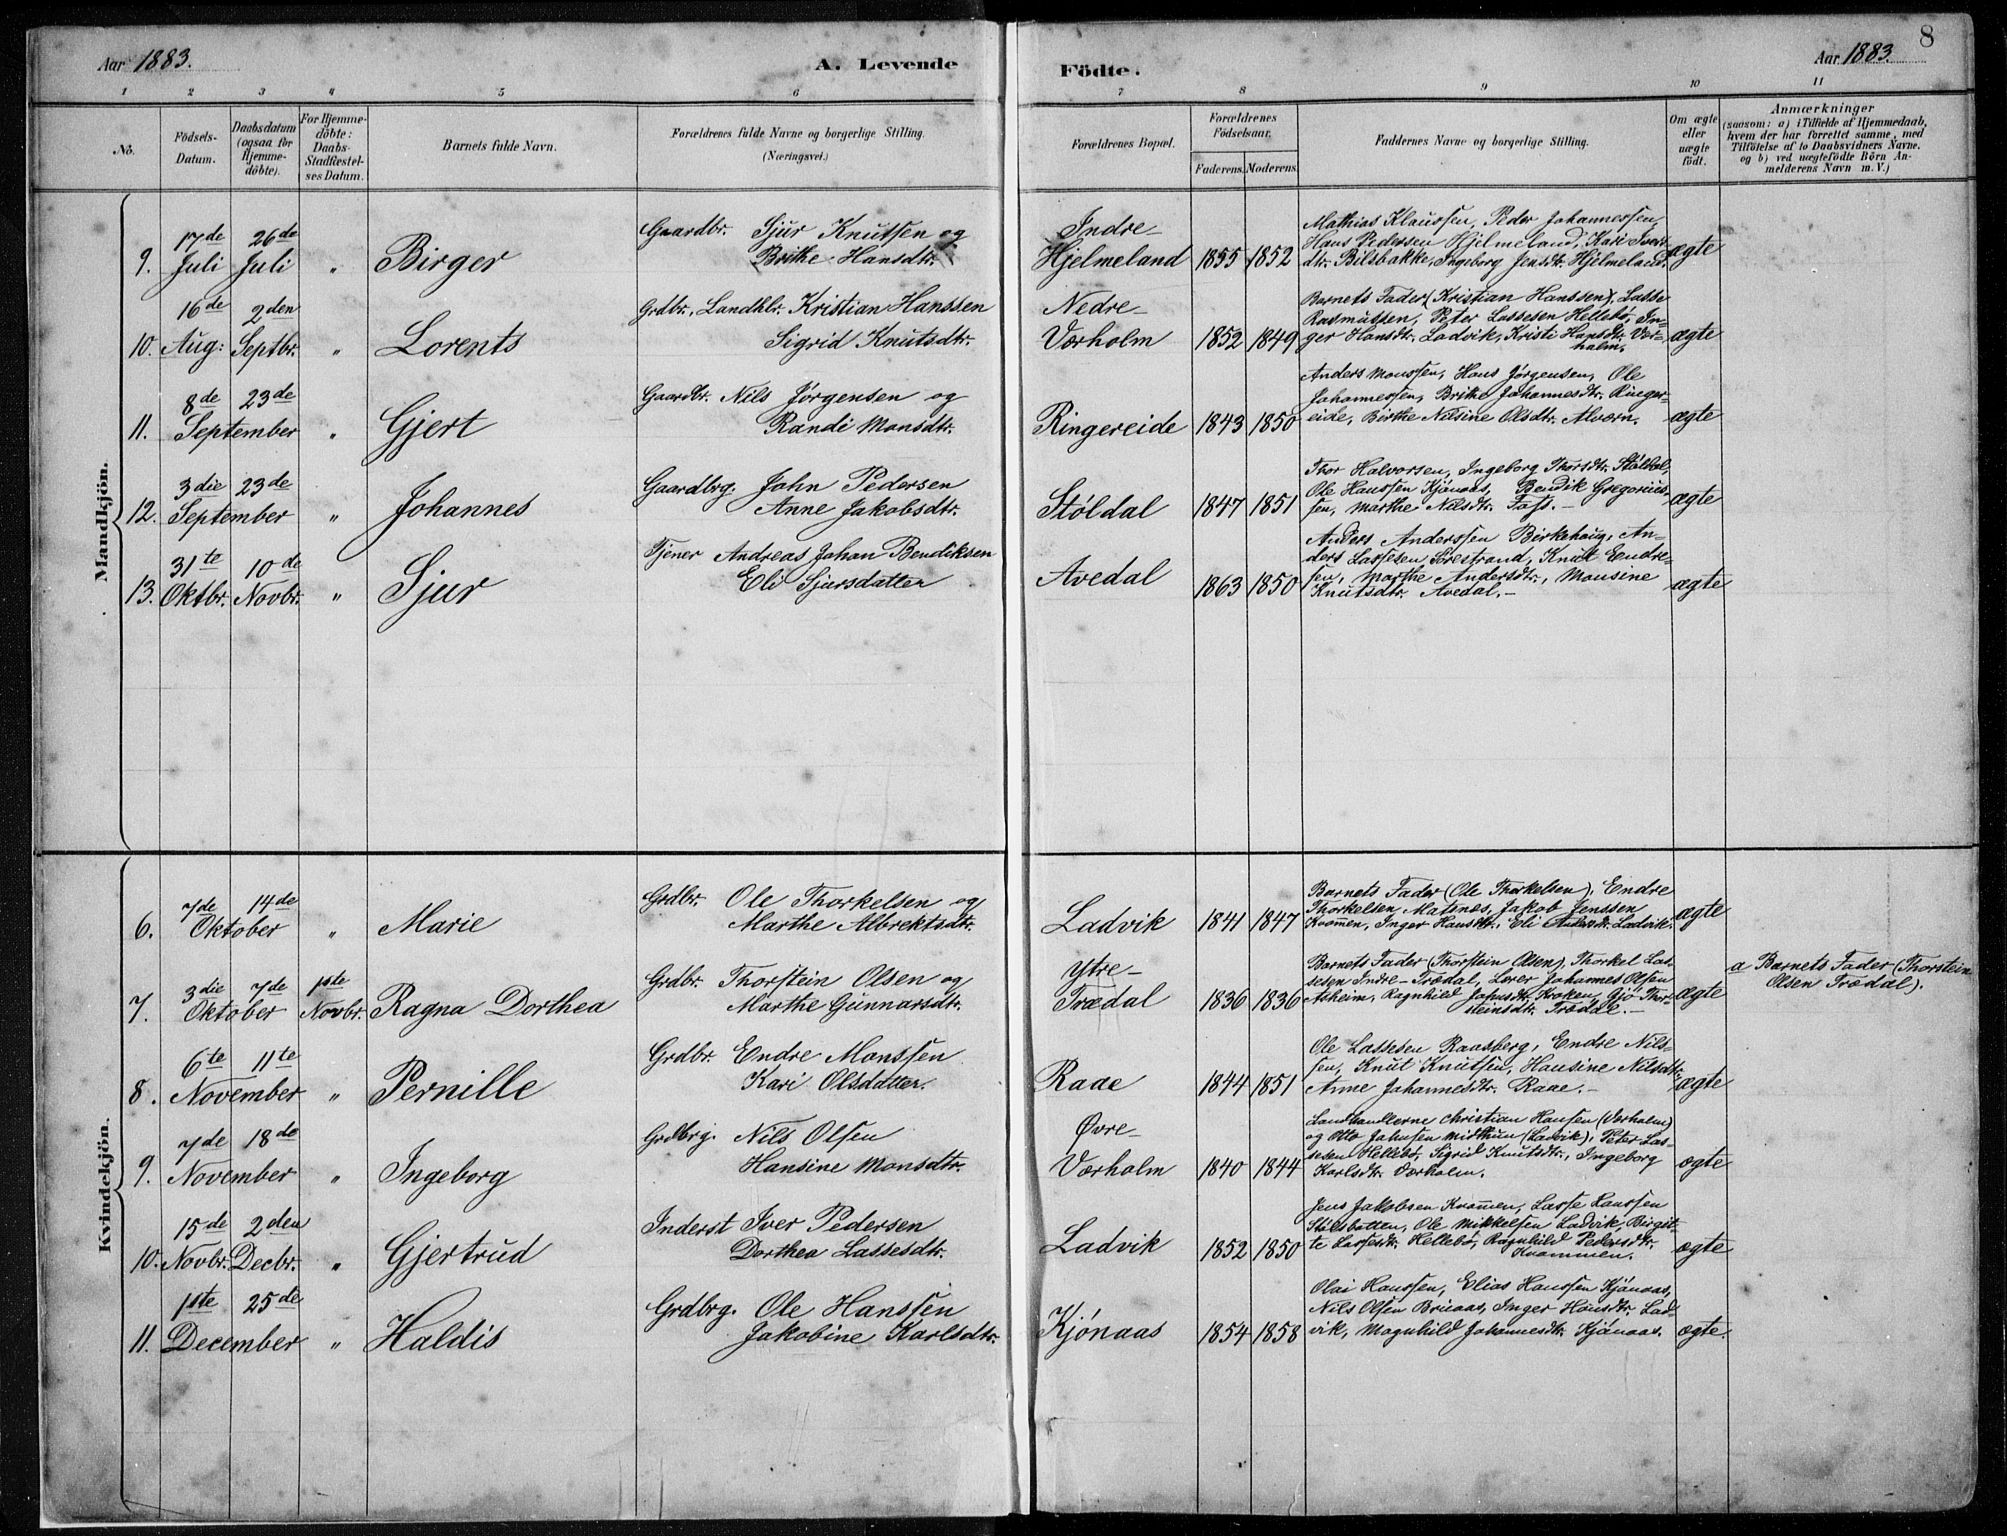 8
Aar 1883.
A. Levende
Födte.
Aar 1883.
1 2 3 4 5 6 7 8 9 10 11
No.
Födsels-
Datum.
Daabsdatum
(ogsaa for
Hjemme-
döbte).
For Hjemme-
döbte:
Daabs-
Stadfæstel-
ses Datum.
Barnets fulde Navn.
Forældrenes fulde Navne og borgerlige Stilling.
(Næringsvei.)
Forældrenes Bopæl.
Forældrenes
Födselsaar.
Faderens. Moderens.
Faddernes Navne og borgerlige Stilling.
Om ægte
eller
uægte
födt.
Anmærkninger
(saasom: a) i Tilfælde af Hjemmedaab,
hvem der har forrettet samme, med
Tilföielse af to Daabsvidners Navne.
og b) ved uægtefödte Börn An-
melderens Navn m. V.)
Mandkjön.
17de 26de Gaardbr. Sjur Knutsen og Indre- Mathias Klaussen, Peder Johannessen,
9. Juli Juli " Birger Brithe Hansdtr. Hjelmeland 1855 1852 Hans Pedersen Hjelmeland, Kari Ivers-
dtr. Bilsbakke, Ingeborg Jensdtr. Hjelmeland. ægte
16de 2den Grdbr., Landhlr. Kristian Hanssen Nedre- Barnets Fader (Kristian Hanssen), Lasse
10. Aug: Septbr. " Lorents Sigrid Knutsdtr. Værholm 1852 1849 Rasmussen, Peter Lassesen Hellebø, In-
ger Hansdtr. Ladvik, Kristi Hansdtr. Vær-
holm. ægte
8de 23de Gaardbr. Nils Jørgensen og Anders Monssen, Hans Jørgensen, Ole
11. September " Gjert Randi Monsdtr. Ringereide 1843 1850 Johannessen, Brithe Johannesdtr. Ringer-
eide, Birthe Nilsine Olsdtr. Alværn. ægte
3die 23de Gaardbrg. John Pedersen Thor Halvorsen, Ingeborg Thorsdtr. Støldal,
12. September " Johannes Anne Jakobsdtr. Støldal 1847 1851 Ole Hanssen Kjønaas, Bendik Gregorius-
sen, Marthe Nilsdtr. Foss.- ægte
31te 10de Tjener Andreas Johan Bendiksen Anders Anderssen Birkehaug, An-
13. Oktbr. Novbr. " Sjur Eli Sjursdatter Avedal 1863 1850 ders Lassesen Sørestrand, Knut Endre-
sen, Marthe Andersdtr., Monsine
Knutsdtr. Avedal.- ægte
Kvindekjön.
7de 14de Grdbr. Ole Thorkelsen og Barnets Fader (Ole Thorkelsen), Endre
6. Oktober " Marie Marthe Albrektsdtr. Ladvik 1841 1847 Thorkelsen Matsnæs, Jakob Jenssen
Kvammen, Inger Hansdtr., Eli Andersdtr. Ladvik. ægte
3die 7de 1ste Grdbr. Thorstein Olsen og Ytre- Barnets Fader (Thorstein Olsen), Thorkel Las- a Barnets Fader (Thorstein
7. Oktober Novbr. Ragna Dorthea Marthe Gunnarsdtr. Trædal 1836 1836 sesen Indre-Trædal, Lærer Johannes Olsen Olsen Trædal).
Asheim, Ragnhild Johnsdtr. Kroken, Gjø Thor-
steinsdtr. Trædal.- ægte
6te 11te Grdbr. Endre Monssen Ole Lassesen Raasberg, Endre Nils-
8. November " Pernille Kari Olsdatter. Raae 1844 1851 sen, Knut Knutsen, Hansine Nilsdtr.,
Anne Johannesdtr. Raae.- ægte
7de 18de Grdbrg. Nils Olsen Øvre- Landhandlerne Christian Hansen (Værholm)
9. November " Ingeborg Hansine Monsdtr. Værholm 1840 1844 og Otto Johnsen Midthun (Ladvik), Peter Las-
sesen Hellebø, Sigrid Knutsdtr., Ingeborg
Karlsdtr. Værholm. ægte
15de 2den Inderst Iver Pedersen Jens Jakobsen Kvammen, Lasse Hanssen
10. Novbr. Decbr. " Gjertrud Dorthea Lassesdtr. Ladvik 1852 1850 Stølsbotten, Ole Mikkelsen Ladvik, Birgit-
te Lassesdtr. Hellebø, Ragnhild Pedersdtr.
Kvammen. ægte
1ste 25de Grdbrg. Ole Hanssen Olai Hanssen, Elias Hanssen Kjønaas,
11. December " Haldis Jakobine Karlsdtr. Kjønaas 1854 1858 Nils Olsen Bruaas, Inger Hansdtr. Lad-
vik, Magnhild Johannesdtr. Kjønaas. ægte.